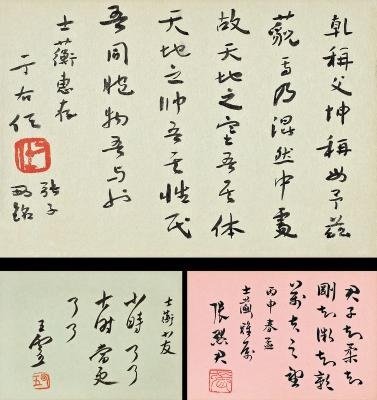 乾稱父坤稱母予茲
藐焉乃混然中處
故天地之塞吾其体
天地之帅吾其性民
吾同胞物吾与也
士蘅惠存
于右任
張子
西銘
士衡小友
小時了了
大時當更
了了
王雲五
君子知柔知
剛知微知彰
萬夫之望
丙申春孟
士蘅
張默君